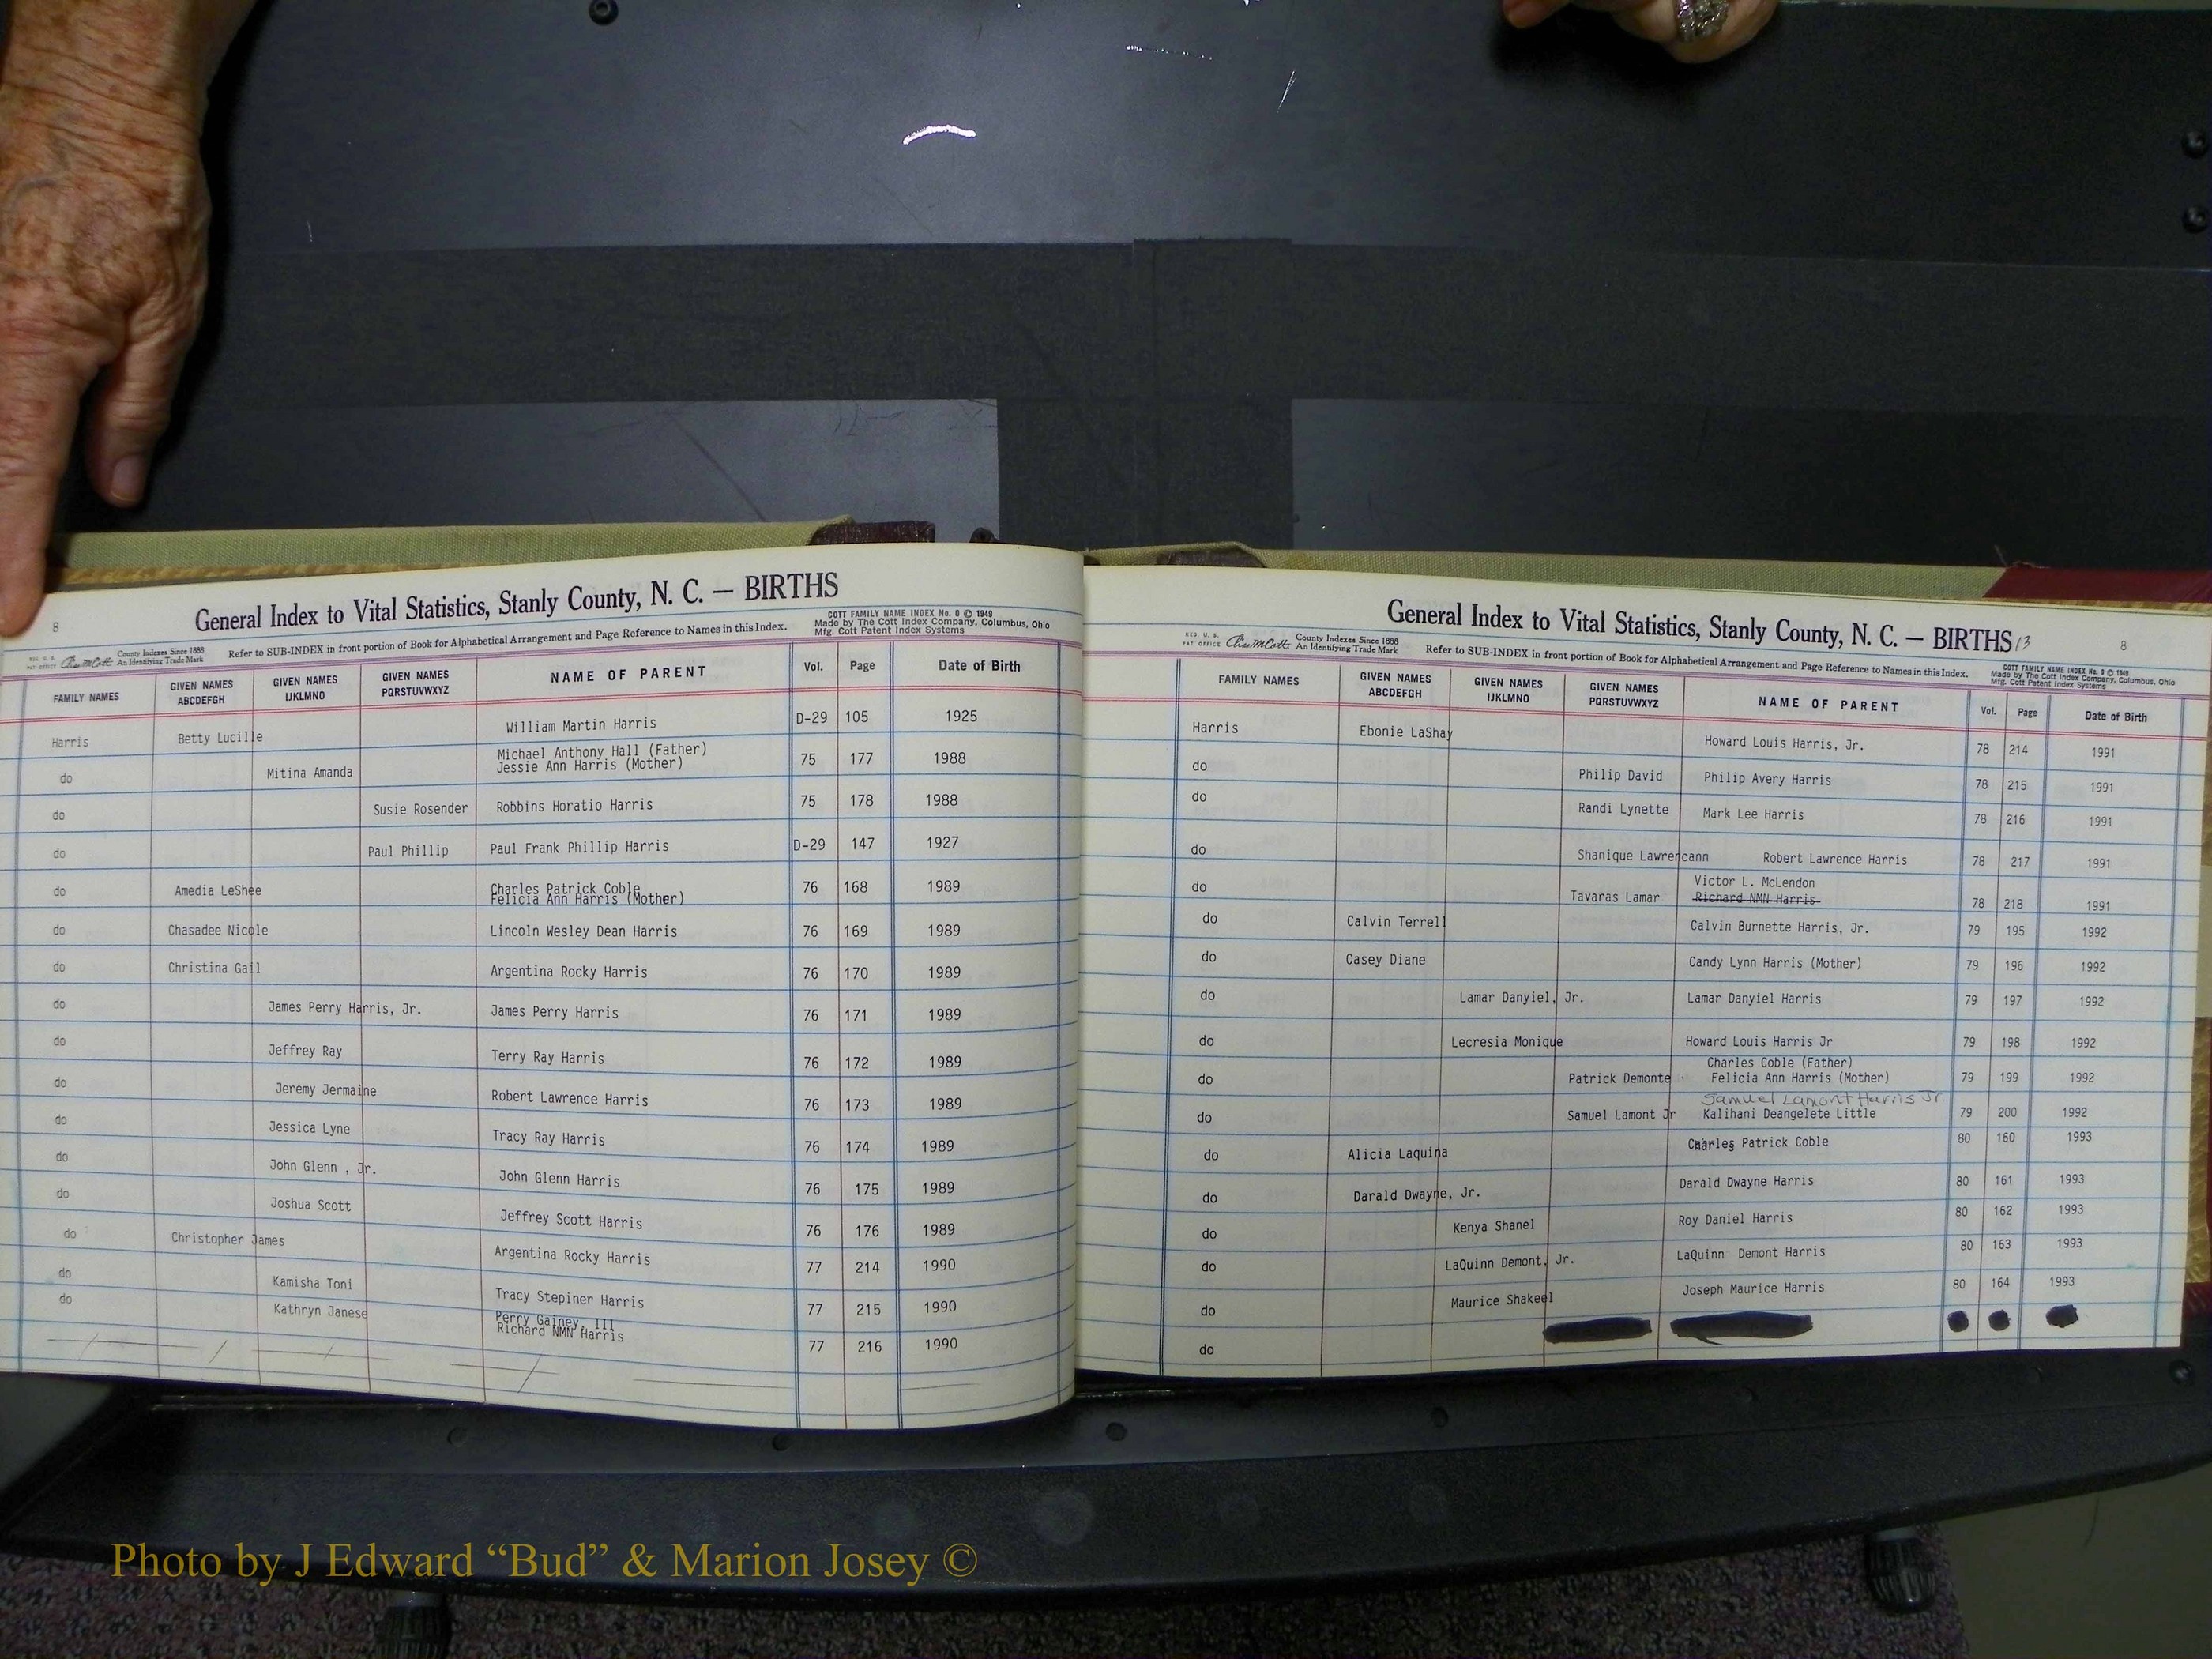 8
General Index to Vital Statistics, Stanly County, N. C. — BIRTHS
COTT FAMILY NAME INDEX No. 0 © 1949
Made by The Cott Index Company, Columbus, Ohio
Mfg. Cott Patent Index Systems
REG. U. S. PAT OFFICE
County Indexes Since 1888
An Identifying Trade Mark
Refer to SUB-INDEX in front portion of Book for Alphabetical Arrangement and Page Reference to Names in this Index.
FAMILY NAMES GIVEN NAMES ABCDEFGH GIVEN NAMES IJKLMNO GIVEN NAMES PQRSTUVWXYZ NAME OF PARENT Vol. Page Date of Birth
Harris Betty Lucille William Martin Harris D-29 105 1925
do Mitina Amanda Michael Anthony Hall (Father)
Jessie Ann Harris (Mother) 75 177 1988
do Susie Rosender Robbins Horatio Harris 75 178 1988
do Paul Phillip Paul Frank Phillip Harris D-29 147 1927
do Amedia LeShee Charles Patrick Coble
Felicia Ann Harris (Mother) 76 168 1989
do Chasadee Nicole Lincoln Wesley Dean Harris 76 169 1989
do Christina Gail Argentina Rocky Harris 76 170 1989
do James Perry Harris, Jr. James Perry Harris 76 171 1989
do Jeffrey Ray Terry Ray Harris 76 172 1989
do Jeremy Jermaine Robert Lawrence Harris 76 173 1989
do Jessica Lyne Tracy Ray Harris 76 174 1989
do John Glenn , Jr. John Glenn Harris 76 175 1989
do Joshua Scott Jeffrey Scott Harris 76 176 1989
do Christopher James Argentina Rocky Harris 77 214 1990
do Kamisha Toni Tracy Stepiner Harris 77 215 1990
do Kathryn Janese Perry Gainey, III
Richard NMN Harris 77 216 1990
General Index to Vital Statistics, Stanly County, N. C. — BIRTHS 13
8
REG. U. S. PAT OFFICE
County Indexes Since 1888
An Identifying Trade Mark
Refer to SUB-INDEX in front portion of Book for Alphabetical Arrangement and Page Reference to Names in this Index.
COTT FAMILY NAME INDEX No. 0 © 1949
Made by The Cott Index Company, Columbus, Ohio
Mfg. Cott Patent Index Systems
FAMILY NAMES GIVEN NAMES ABCDEFGH GIVEN NAMES IJKLMNO GIVEN NAMES PQRSTUVWXYZ NAME OF PARENT Vol. Page Date of Birth
Harris Ebonie LaShay Howard Louis Harris, Jr. 78 214 1991
do Philip David Philip Avery Harris 78 215 1991
do Randi Lynette Mark Lee Harris 78 216 1991
do Shanique Lawrencann Robert Lawrence Harris 78 217 1991
do Tavaras Lamar Victor L. McLendon
Richard NMN Harris 78 218 1991
do Calvin Terrell Calvin Burnette Harris, Jr. 79 195 1992
do Casey Diane Candy Lynn Harris (Mother) 79 196 1992
do Lamar Danyiel, Jr. Lamar Danyiel Harris 79 197 1992
do Lecresia Monique Howard Louis Harris Jr 79 198 1992
Charles Coble (Father)
do Patrick Demonte Felicia Ann Harris (Mother) 79 199 1992
Samuel Lamont Harris Jr
do Samuel Lamont Jr Kalihani Deangelete Little 79 200 1992
do Alicia Laquina Charles Patrick Coble 80 160 1993
do Darald Dwayne, Jr. Darald Dwayne Harris 80 161 1993
do Kenya Shanel Roy Daniel Harris 80 162 1993
do LaQuinn Demont, Jr. LaQuinn Demont Harris 80 163 1993
do Maurice Shakeel Joseph Maurice Harris 80 164 1993
do
Photo by J Edward “Bud” & Marion Josey ©